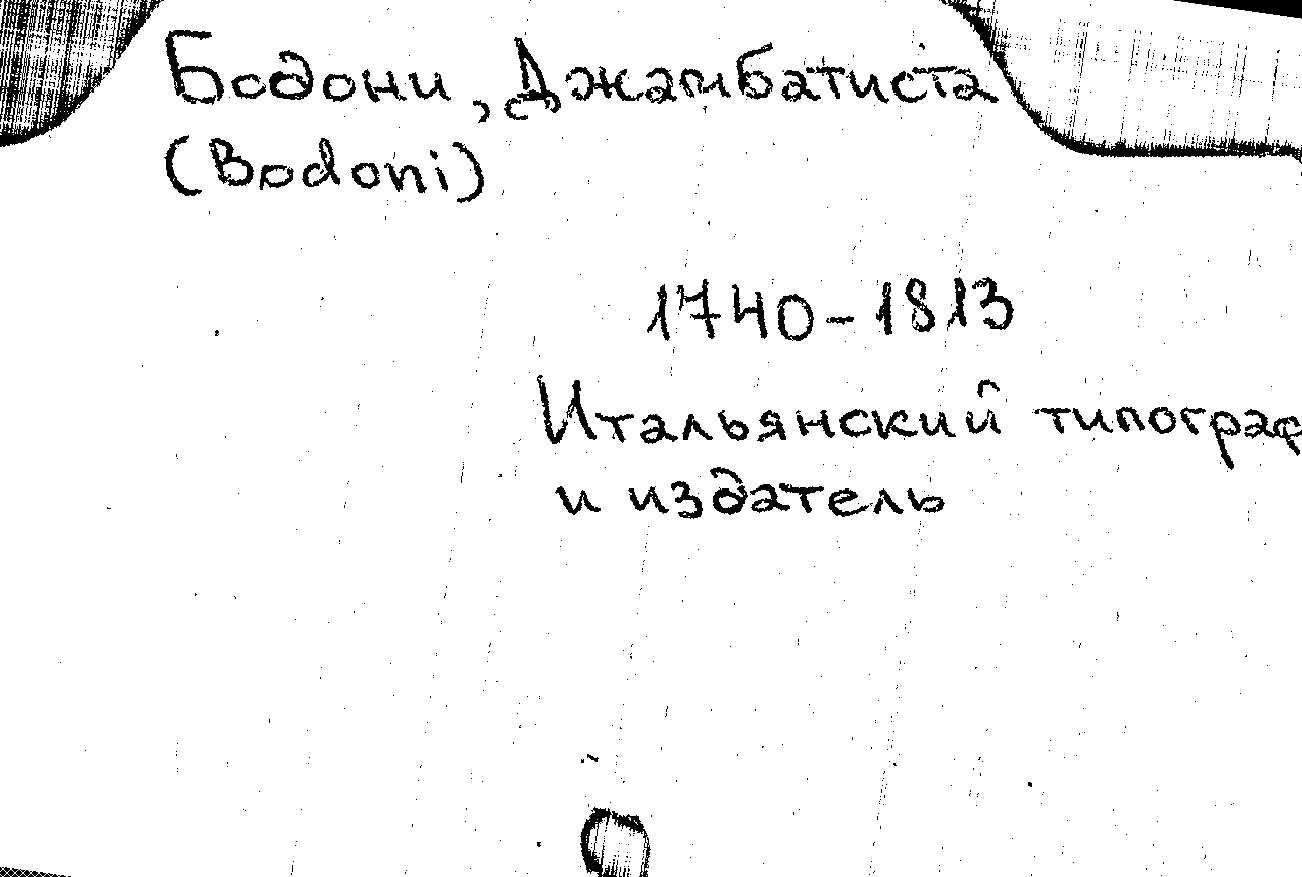 Бодони, Джамбатиста
(Bodoni)
1740-1813
Итальянский типограф
и издатель